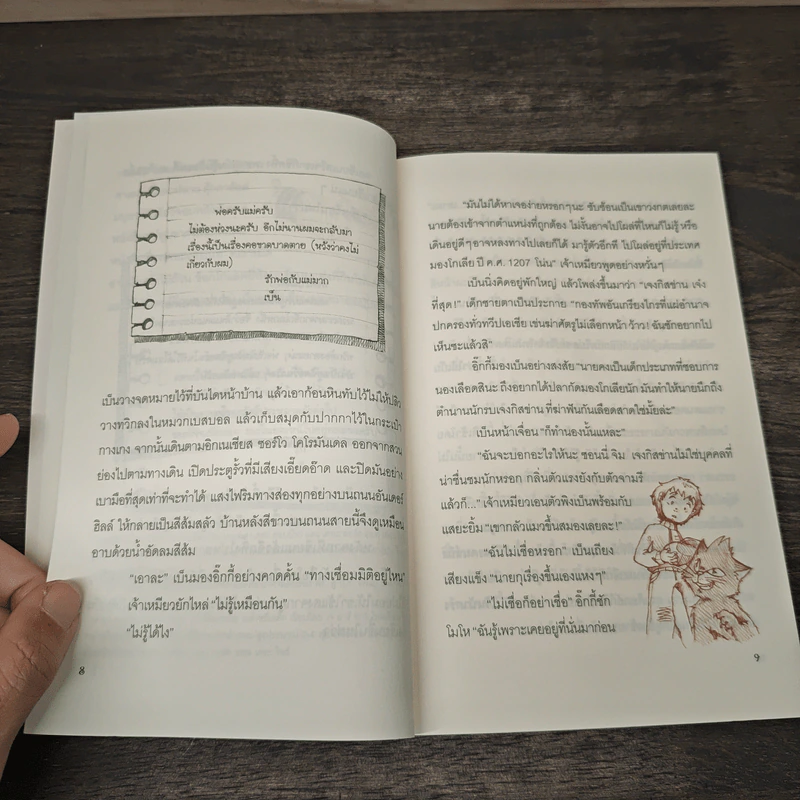 พ่อครับแม่ครับ
ไม่ต้องห่วงนะครับ อีกไม่นานผมจะกลับมา
เรื่องนี้เป็นเรื่องคอขาดบาดตาย (หวังว่าคงไม่
เกี่ยวกับผม)
รักพ่อกับแม่มาก
เบ็น
เบ็นวางจดหมายไว้ที่บันไดหน้าบ้าน แล้วเอาก้อนหินทับไว้ไม่ให้ปลิว
วางทวิกลงในหมวกเบสบอล แล้วเก็บสมุดกับปากกาไว้ในกระเป๋า
กางเกง จากนั้นเดินตามอิกเนเชียส ซอร์โว โคโรมันเดล ออกจากสวน
ย่องไปตามทางเดิน เปิดประตูรั้วที่มีเสียงเอี๊ยดอ๊าด และปิดมันอย่าง
เบามือที่สุดเท่าที่จะทำได้ แสงไฟริมทางส่องทุกอย่างบนถนนอันเดอร์
ฮิลล์ ให้กลายเป็นสีส้มสลัว บ้านหลังสีขาวบนถนนสายนี้จึงดูเหมือน
อาบด้วยน้ำอัดลมสีส้ม
"เอาละ" เบ็นมองอิ๊กกี้อย่างคาดคั้น "ทางเชื่อมมิติอยู่ไหน"
เจ้าเหมียวยักไหล่ "ไม่รู้เหมือนกัน"
"ไม่รู้ได้ไง"
8
"มันไม่ได้หาเจอง่ายหรอกๆนะ ซับซ้อนเป็นเขาวงกตเลยละ
นายต้องเข้าจากตำแหน่งที่ถูกต้อง ไม่งั้นอาจไปโผล่ที่ไหนก็ไม่รู้ หรือ
เดินอยู่ดีๆอาจหลงทางไปเลยก็ได้ มารู้ตัวอีกที ไปโผล่อยู่ที่ประเทศ
มองโกเลีย ปี ค.ศ. 1207 โน่น" เจ้าเหมียวพูดอย่างหวั่นๆ
เบ็นนิ่งคิดอยู่พักใหญ่ แล้วโพล่งขึ้นมาว่า "เจงกิสข่าน เจ๋ง
ที่สุด!" เด็กชายตาเป็นประกาย "กองทัพอันเกรียงไกรที่แผ่อำนาจ
ปกครองทั่วทวีปเอเชีย เข่นฆ่าศัตรูไม่เลือกหน้า ว้าว! ฉันชักอยากไป
เห็นซะแล้วสิ"
อิ๊กกี้มองเบ็นอย่างสงสัย "นายคงเป็นเด็กประเภทที่ชอบการ
นองเลือดสินะ ถึงอยากได้ปลากัดมองโกเลียนัก มันทำให้นายนึกถึง
ตำนานนักรบเจงกิสข่าน ที่ฆ่าฟันกันเลือดสาดใช่มั้ยล่ะ"
เบ็นหน้าเจื่อน "ก็ทำนองนั้นแหละ"
"ฉันจะบอกอะไรให้นะ ซอนนี่ จิม เจงกิสข่านไม่ใช่บุคคลที่
น่าชื่นชมนักหรอก กลิ่นตัวแรงยังกับตัวจามรี
แล้วก็..." เจ้าเหมียวเอนตัวพิงเบ็นพร้อมกับ
แสยะยิ้ม "เขากลัวแมวขึ้นสมองเลยละ!"
"ฉันไม่เชื่อหรอก" เบ็นเถียง
เสียงแข็ง "นายกุเรื่องขึ้นเองแหงๆ"
"ไม่เชื่อก็อย่าเชื่อ" อิ๊กกี้ชัก
โมโห "ฉันรู้เพราะเคยอยู่ที่นั่นมาก่อน
9